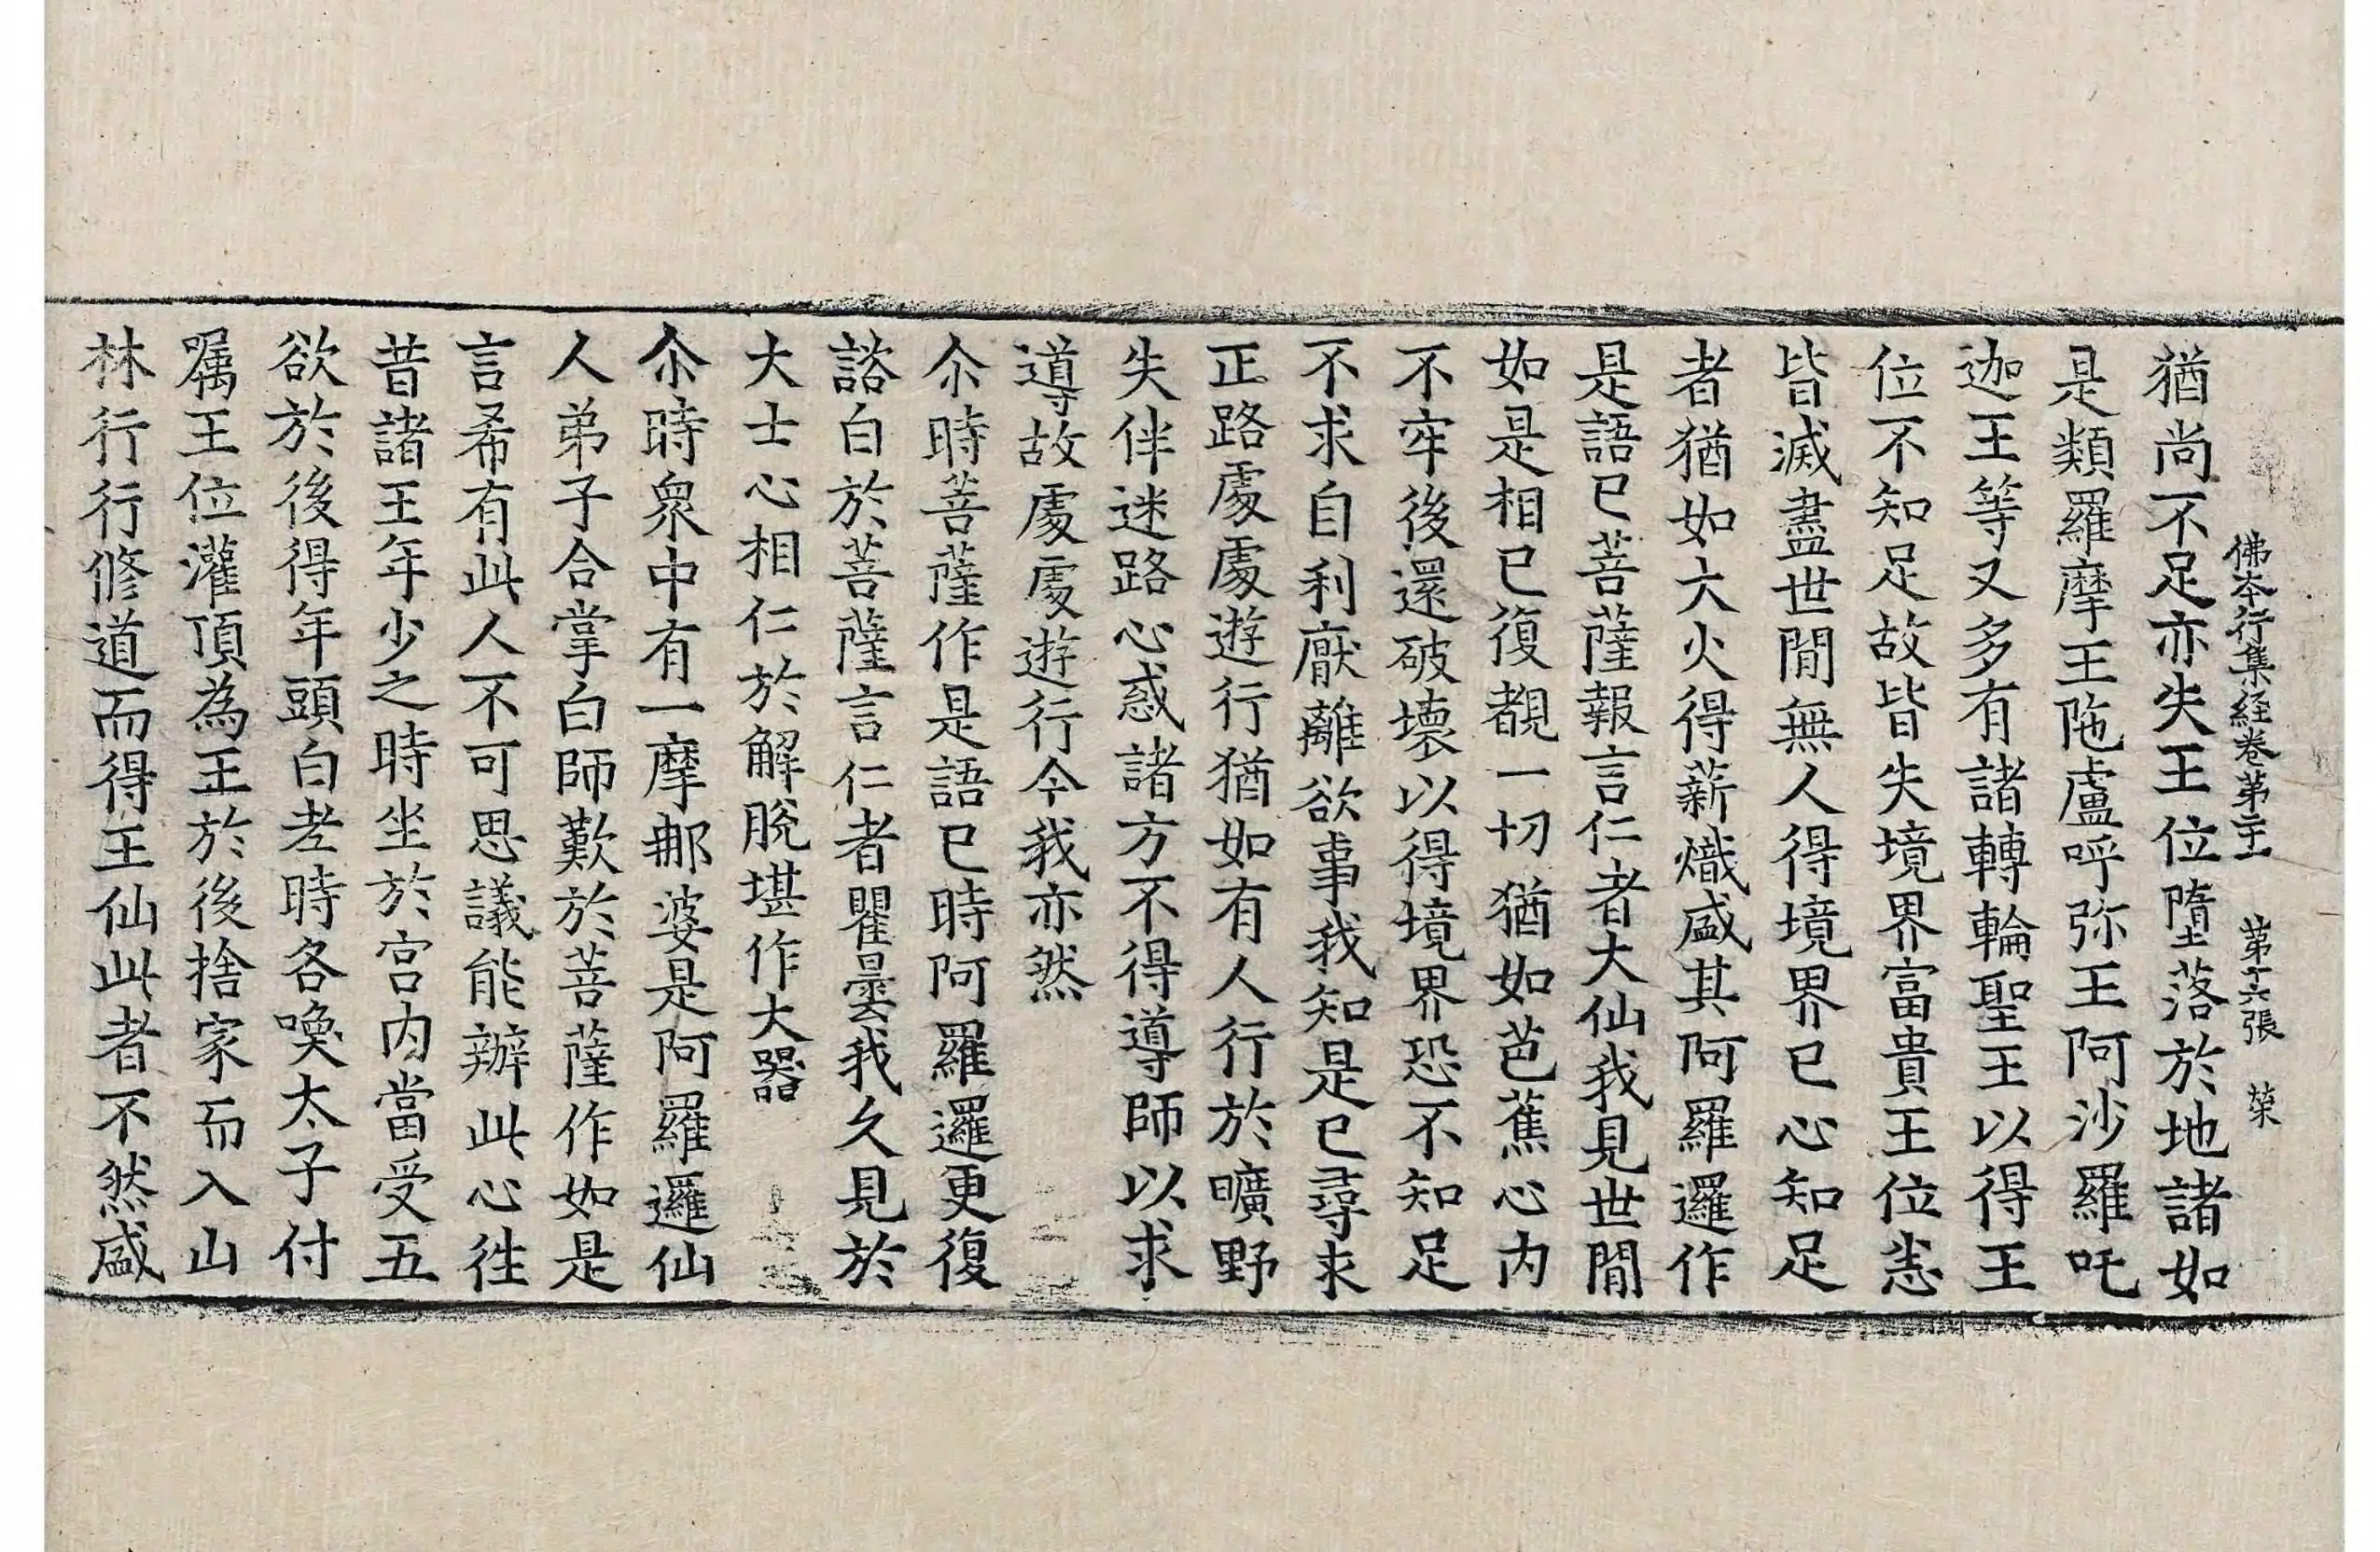 佛本行集経卷第二十一 第十六張 荣
猶尚不足亦失王位墮落於地諸如
是類羅摩王陁盧呼弥王阿沙羅吒
迦王等又多有諸轉輪聖王以得王
位不知足故皆失境界富貴王位恚
皆滅盡世間無人得境界已心知足
者猶如大火得薪熾盛其阿羅邏作
是語已菩薩報言仁者大仙我見世間
如是相已復覩一切猶如芭蕉心内
不牢後還破壞以得境界恐不知足
不求自利厭離欲事我知是已尋求
正路處處遊行猶如有人行於曠野
失伴迷路心惑諸方不得導師以求
導故處處遊行今我亦然
尒時菩薩作是語已時阿羅邏更復
諮白於菩薩言仁者瞿曇我久見於
大士心相仁於解脫堪作大器
尒時衆中有一摩那婆是阿羅邏仙
人弟子合掌白師歎於菩薩作如是
言希有此人不可思議能辦此心徃
昔諸王年少之時坐於宮内當受五
欲於後得年頭白老時各喚太子付
嘱王位灌頂為王於後捨家而入山
林行行修道而得王仙此者不然盛